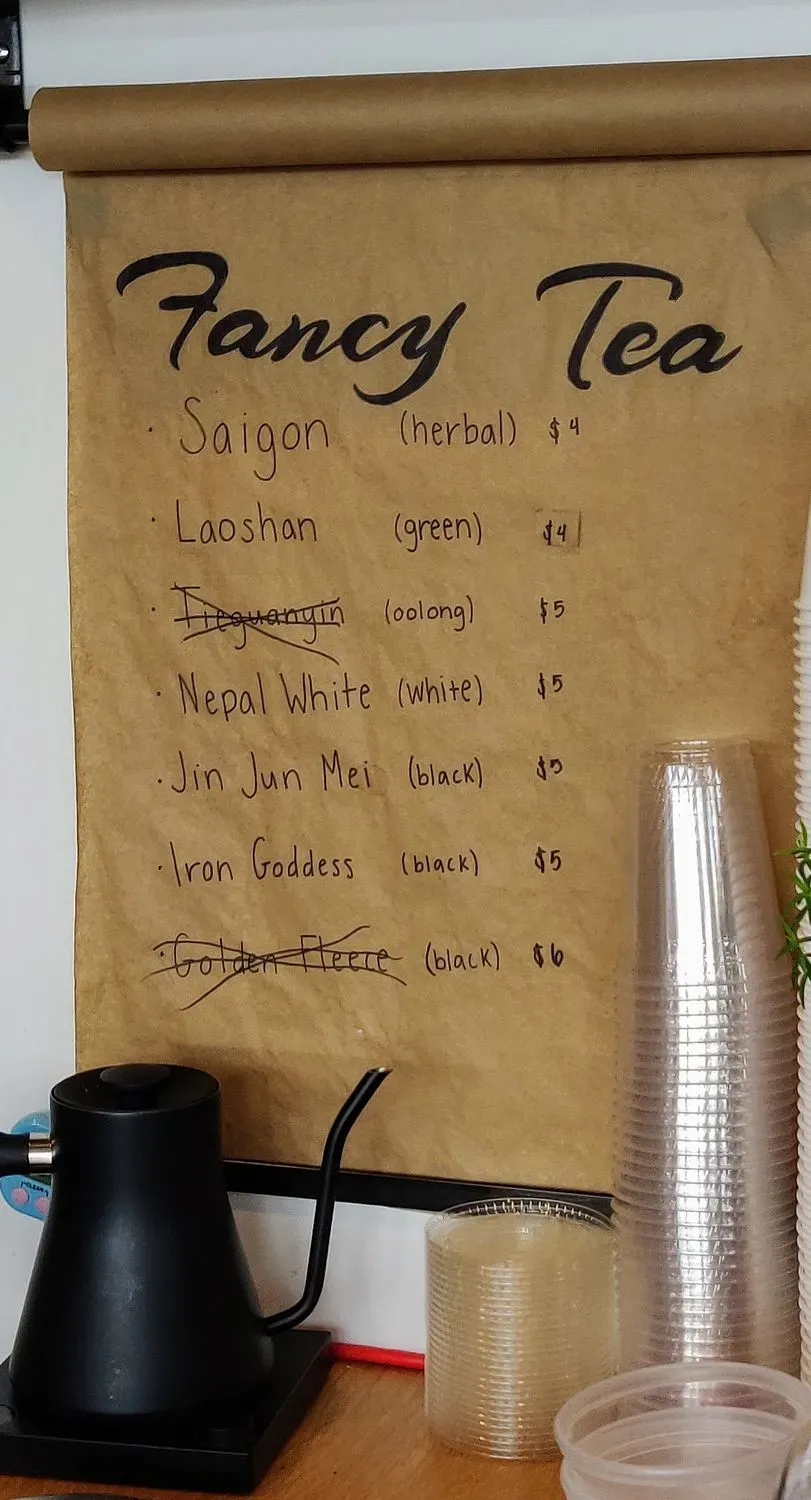 Fancy Tea
· Saigon (herbal) $4
· Laoshan (green) $4
· Tieguanyin (oolong) $5
· Nepal White (white) $5
· Jin Jun Mei (black) $5
· Iron Goddess (black) $5
· Golden Fleece (black) $6